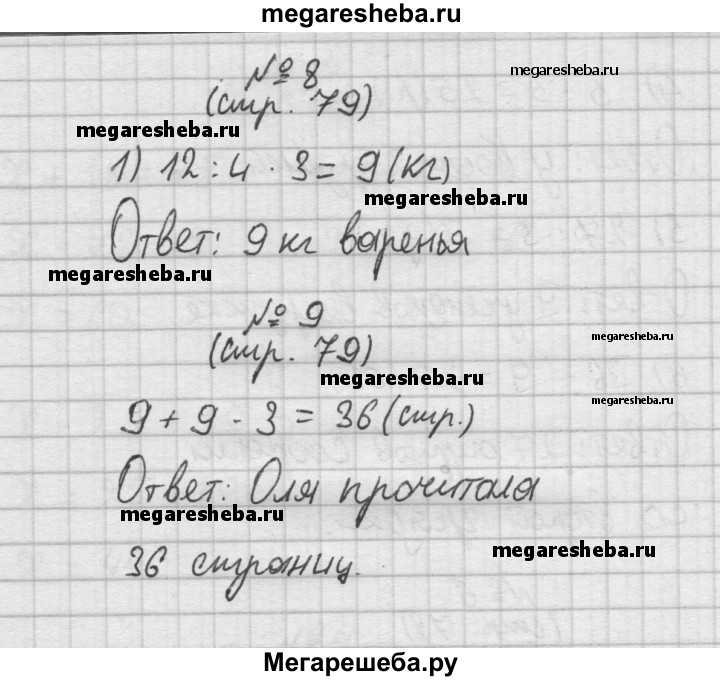 megaresheba.ru
№ 8
megaresheba.ru
(стр. 79)
megaresheba.ru
1) 12 : 4 · 3 = 9 (кг)
megaresheba.ru
Ответ: 9 кг варенья
megaresheba.ru
№ 9
megaresheba.ru
(стр. 79)
megaresheba.ru
megaresheba.ru
9 + 9 · 3 = 36 (стр.)
Ответ: Оля прочитала
megaresheba.ru
36 страниц.
megaresheba.ru
Мегарешеба.ру